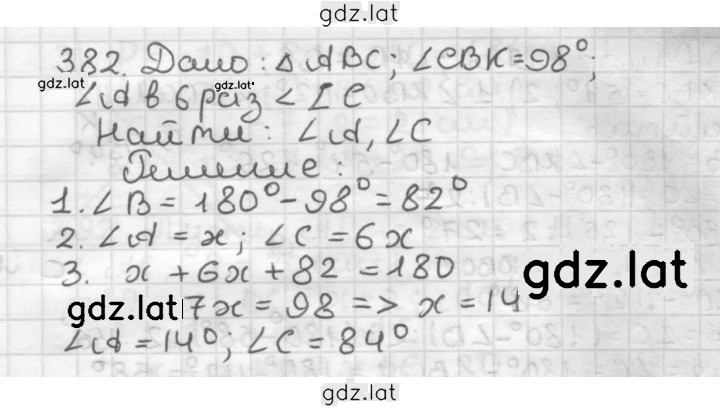 gdz.lat
382. Дано: △ABC; ∠CBK=98°;
gdz.lat gdz.lat
∠A в 6 раз < ∠C
Найти: ∠A, ∠C
Решение:
1. ∠B = 180°-98°=82°
2. ∠A = x; ∠C = 6x
3. x + 6x + 82 = 180
gdz.lat
gdz.lat 7x = 98 => x = 14
∠A = 14°; ∠C = 84°
gdz.lat